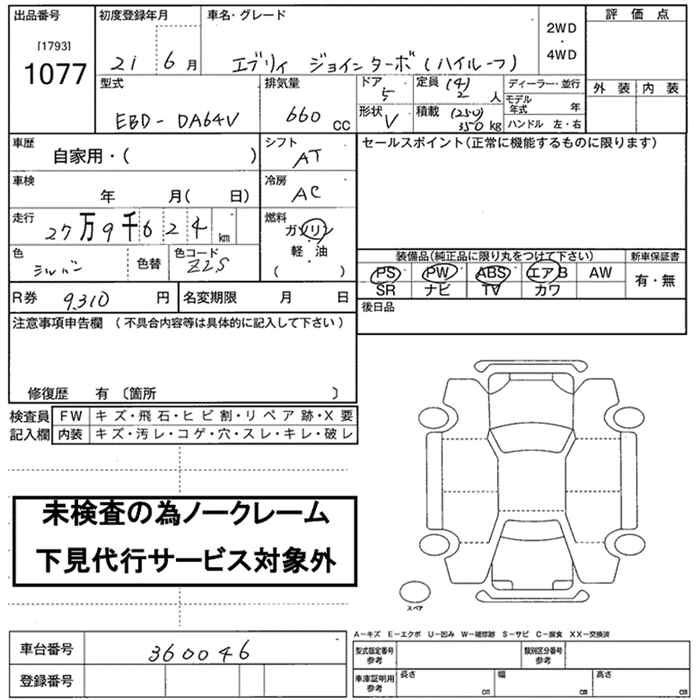 出品番号 初度登録年月 車名・グレード 評価点
[1793]
1077
21 6月 エブリィ ジョインターボ(ハイルーフ) 2WD・4WD
型式 排気量 ドア 定員 (4) ディーラー・並行 外装 内装
5 2人 モデル年式 年
EBD-DA64V 660CC 形状 V 積載 (250) 350kg ハンドル 左・右
車歴 シフト セールスポイント(正常に機能するものに限ります)
自家用・( ) AT
車検 冷房
年 月( 日) AC
走行 燃料
27万9千624km ガソリン
軽・油
( )
色 シルバー 色替 色コード Z2S
装備品(純正品に限り丸をつけて下さい) 新車保証書
PS PW ABS エアB AW 有・無
SR ナビ TV カワ
R券 9,310円 名変期限 月 日 後日品
注意事項申告欄(不具合内容等は具体的に記入して下さい)
修復歴 有〔箇所 〕
検査員 FW キズ・飛石・ヒビ割・リペア跡・X要
記入欄 内装 キズ・汚レ・コゲ・穴・スレ・キレ・破レ
未検査の為ノークレーム
下見代行サービス対象外
スペア
A-キズ E-エクボ U-凹み W-補修跡 S-サビ C-腐食 XX-交換済
車台番号 360046 型式指定番号 参考 類別区分番号 参考
登録番号 車庫証明用 参考 長さ cm 幅 cm 高さ cm